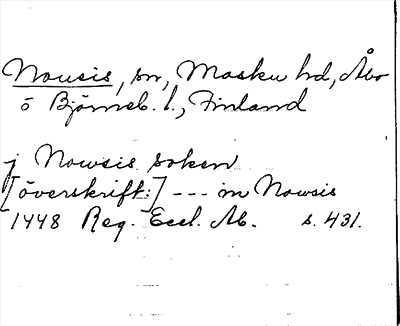 Nousis, sn, Masku hd, Åbo
o Björneb. l., Finland
j Nowsis soken
[överskrift:] --- in Nowsis
1448 Reg. Eccl. Ab. s. 431.